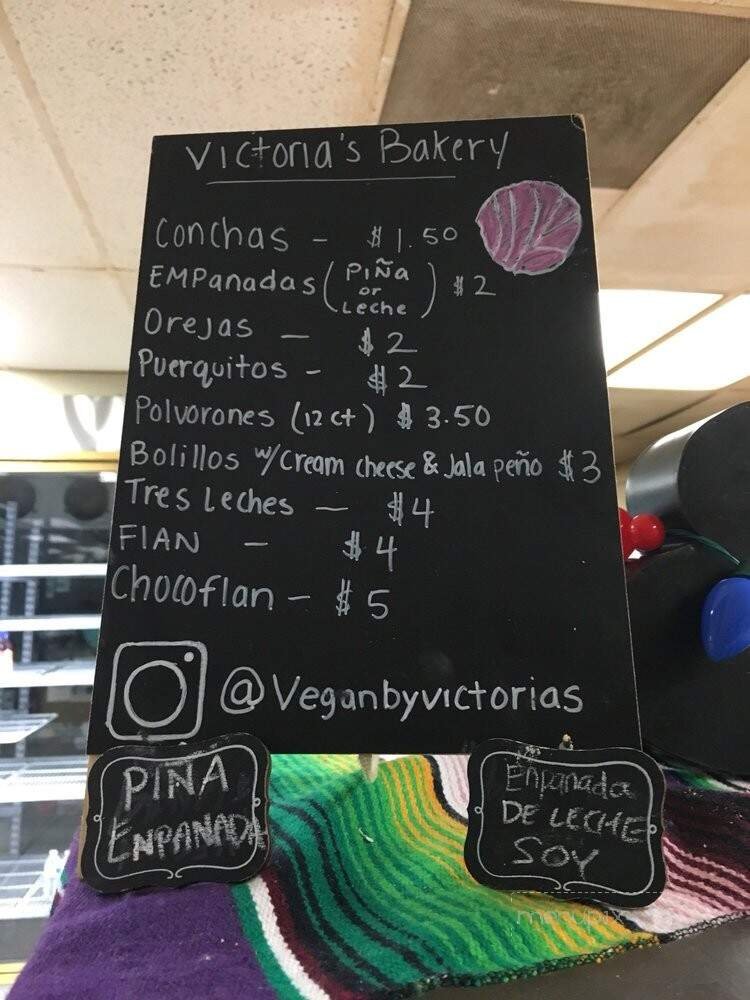 Victoria's Bakery
Conchas - $1.50
EMPanadas (PIÑa or Leche) $2
Orejas - $2
Puerquitos - $2
Polvorones (12 ct) $3.50
Bolillos w/cream cheese & Jalapeño $3
Tres Leches - $4
FlAN - $4
Chocoflan - $5
@Veganbyvictorias
PIÑA
ENPANADA
Enpanada
DE LECHE
SOY
menupix